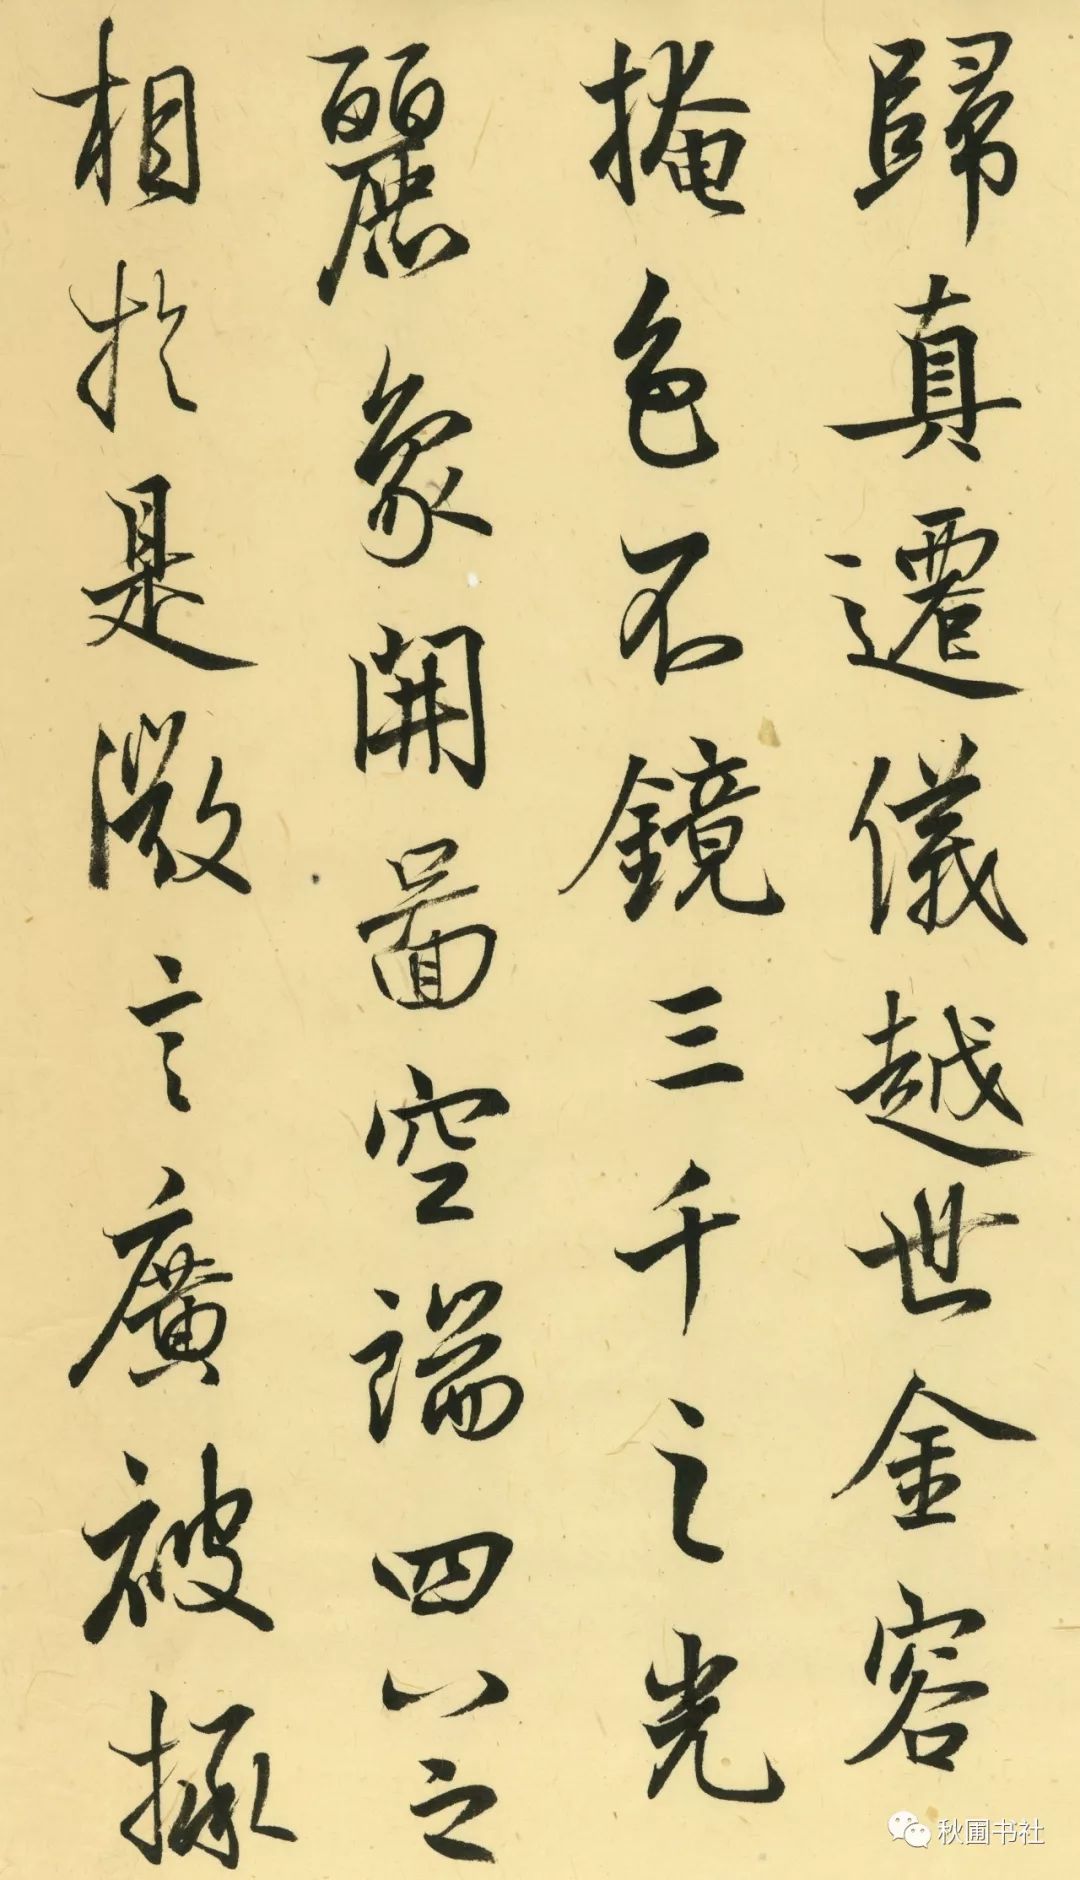 歸真遷儀越世金容
掩色不鏡三千之光
麗象開啚空端四八之
相於是微言廣被拯
秋圃书社